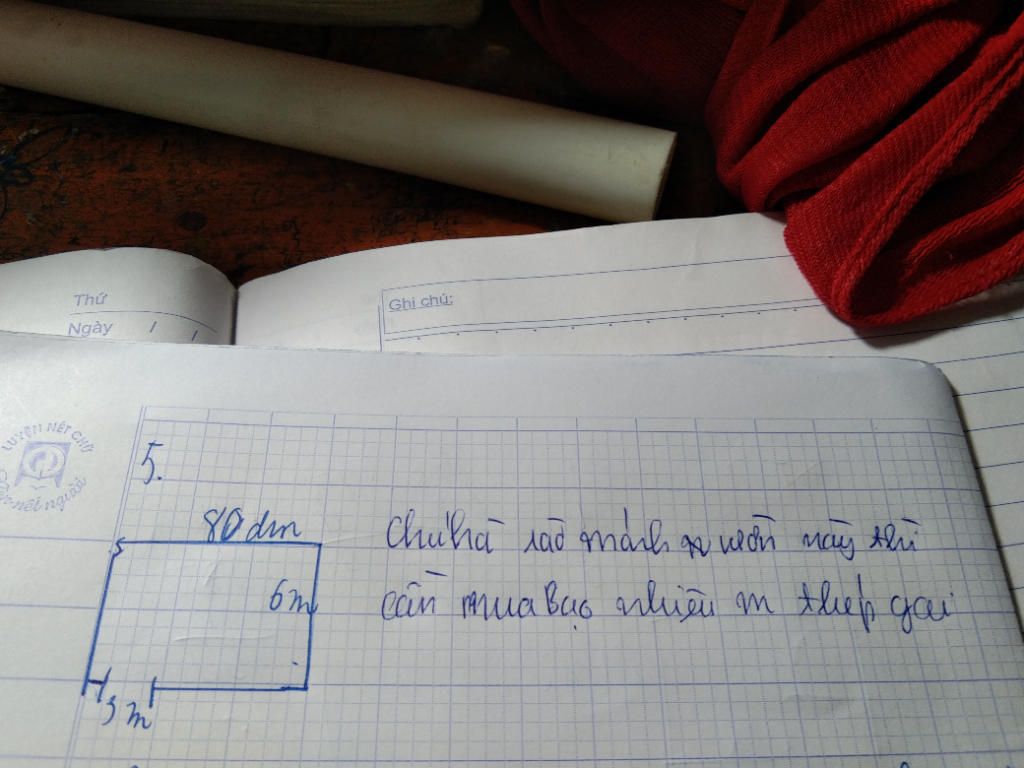 Thứ
Ngày / /
Ghi chú:
LUYỆN NÉT CHỮ
nết người
5.
80 dm
6m
3 m
Chú hà rào mảnh vườn này thì
cần mua bao nhiêu m thép gai